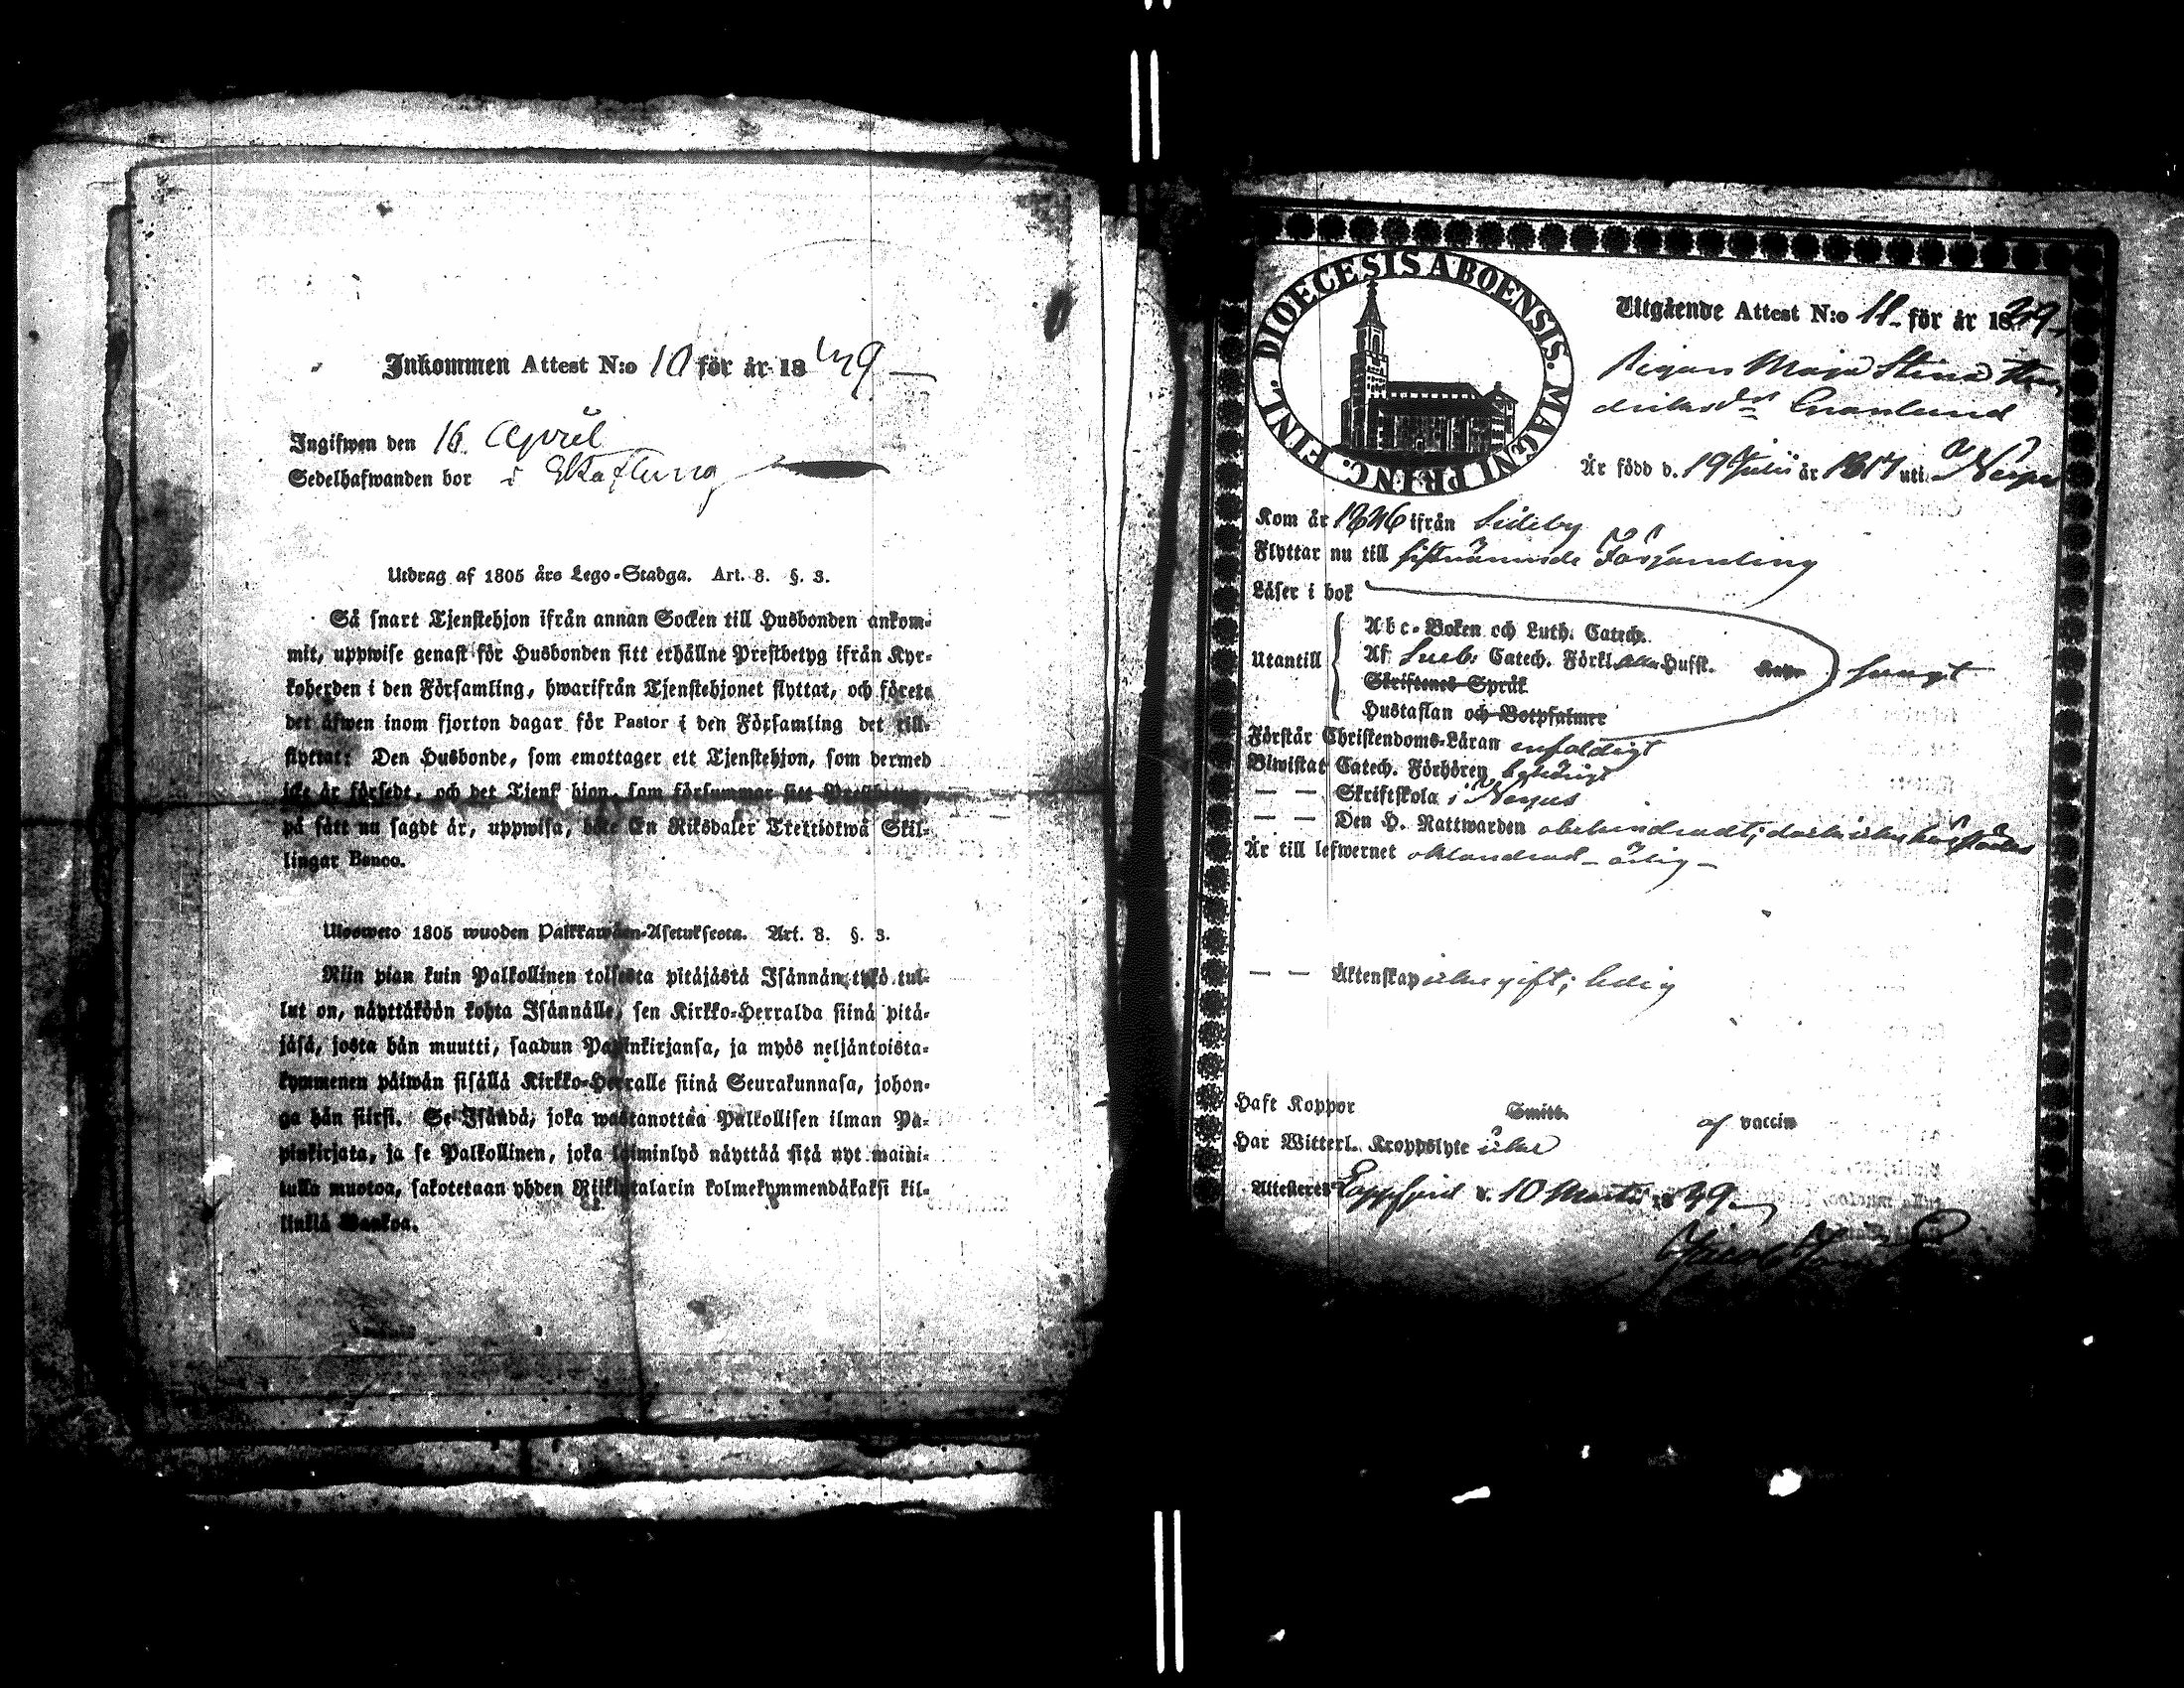 Inkommen Attest N:o 10 för år 1849
Ingifwen den 16 April
Sedelhafwanden bor i
Utdrag af 1805 års Lego-Stadga. Art. 8. §. 3.
Så snart Tjenstehjon ifrån annan Socken till Husbonden ankom-
mit, uppwise genast för Husbonden sitt erhållne Prestbetyg ifrån Kyr-
koherden i den Församling, hwarifrån Tjenstehjonet flyttat, och förete
det äfwen inom fjorton dagar för Pastor i den Församling det till-
flyttat: Den Husbonde, som emottager ett Tjenstehjon, som dermed
icke är försedt, och det Tjenstehjon, som försummar sitt Prestbetyg,
på sätt nu sagdt är, uppwisa, böte En Riksdaler Trettiotwå Skil-
lingar Banco.
Ulosweto 1805 wuoden Palkkawäen-Asetuksesta. Art. 8. §. 3.
Niin pian kuin Palkollinen toisesta pitäjästä Isännän tykö tul-
lut on, näyttäköön kohta Isännälle, sen Kirkko-Herralda siinä pitä-
jäsä, josta hän muutti, saadun Papinkirjansa, ja myös neljäntoista-
kymmenen päiwän sisällä Kirkko-Herralle siinä Seurakunnasa, johon-
ga hän siirsi. Se Isändä, joka wastanottaa Palkollisen ilman Pa-
pinkirjata, ja se Palkollinen, joka laiminlyö näyttää sitä nyt maini-
tulla muotoa, sakotetaan yhden Riikintalarin kolmekymmendäkaksi kil-
linkiä Bankoa.
DIOECESIS ABOENSIS. MAGNI PRINC. FINL.
Utgående Attest N:o 11 för år 1849
Pigan Maja Stina Hen
driksdr Granlund
Är född d. 19 Julii år 1817 uti Nerpes
Kom år 1846 ifrån Sideby
Flyttar nu till sistnämnde Församling
Läser i bok
Utantill
Abc-Boken och Luth. Catech.
Af Sveb: Catech. Förkl. eller Hufst.
Skriftenes Språk
Hustaflan och Botpsalmer
svagt
Förstår Christendoms-Läran enfaldigt
Biwistat Catech. Förhören behörigt
— — Skriftskola i Nerpes
— — Den H. Nattwarden obehindradt; dock icke härstädes
Är till lefwernet oklandrad - ärlig -
— — Äktenskap icke gift; ledig
Haft Koppor Smitt. af vaccin
Har Witterl. Kroppslyte icke
Attesteres Lappfjerd d. 10 Martii 1849